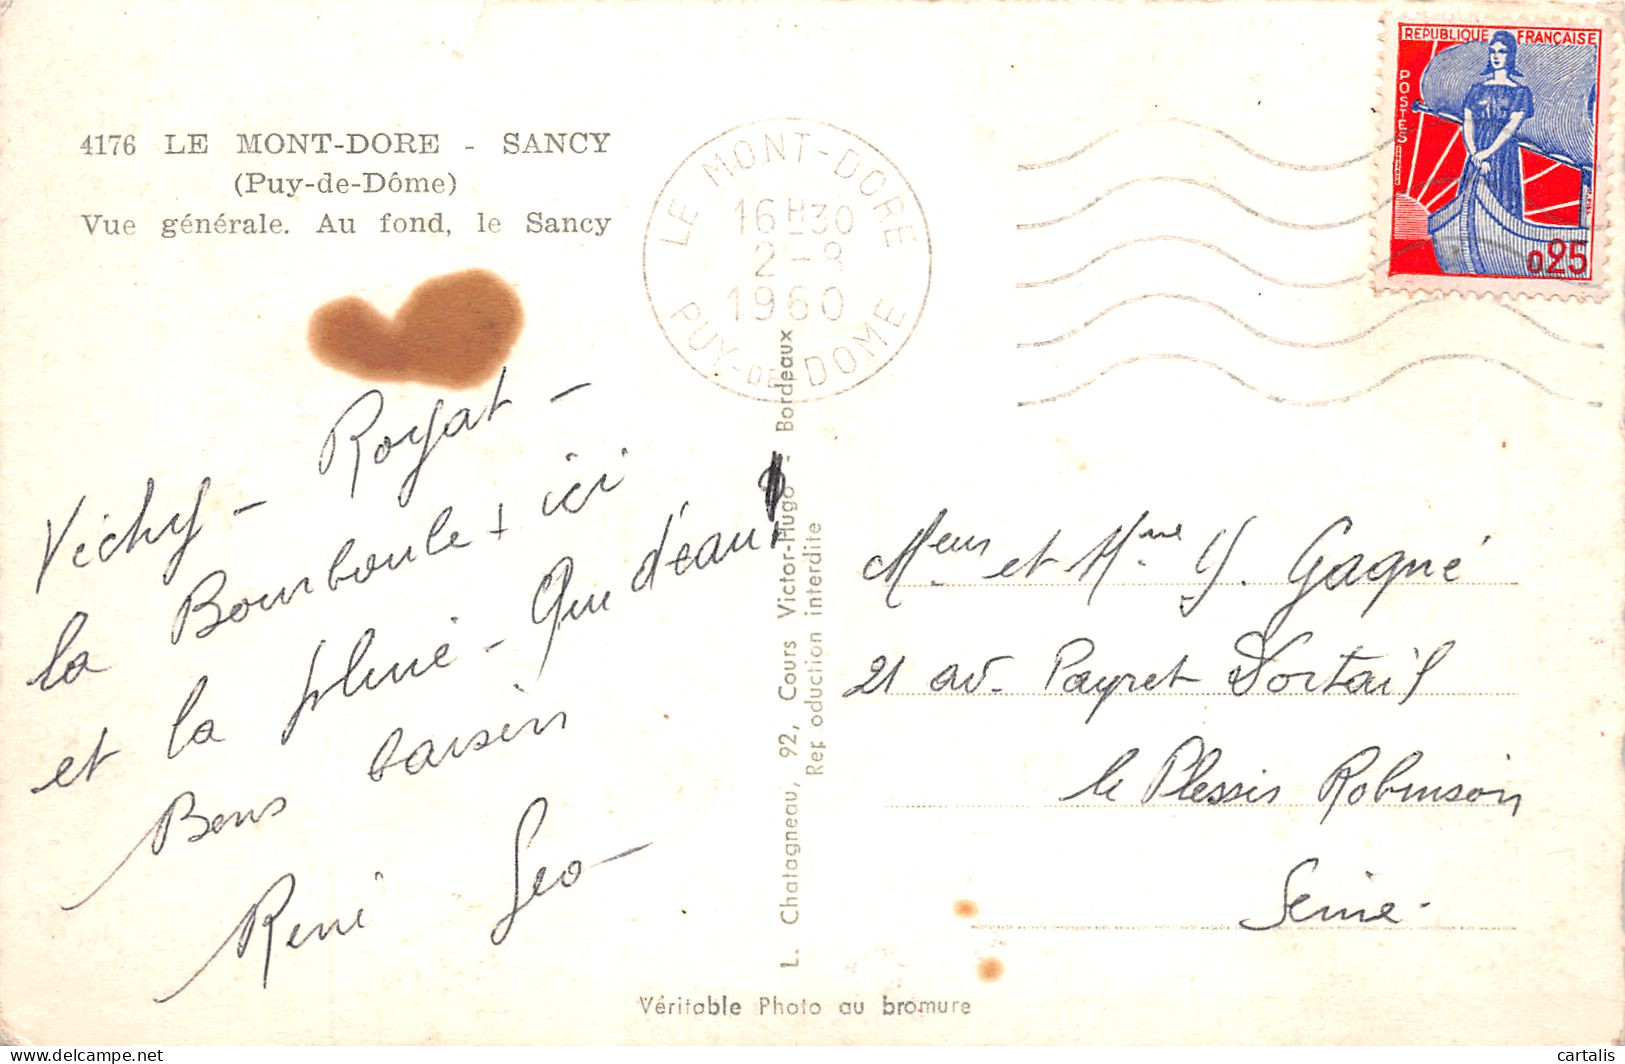 4176 LE MONT-DORE - SANCY
(Puy-de-Dôme)
Vue générale. Au fond, le Sancy
LE MONT-DORE
16H30
2-8
1960
PUY-DE-DOME
REPUBLIQUE FRANÇAISE
POSTES
0,25
Vichy - Royat -
la Bourboule + ici
et la pluie - Que d'eau!
Bons baisers
René Geo -
Meur et Mme Y. Gagné
21 av. Payret Dortail
le Plessis Robinson
Seine.
L. Chatagneau, 92, Cours Victor-Hugo - Bordeaux
Reproduction interdite
Véritable Photo au bromure
cartalis